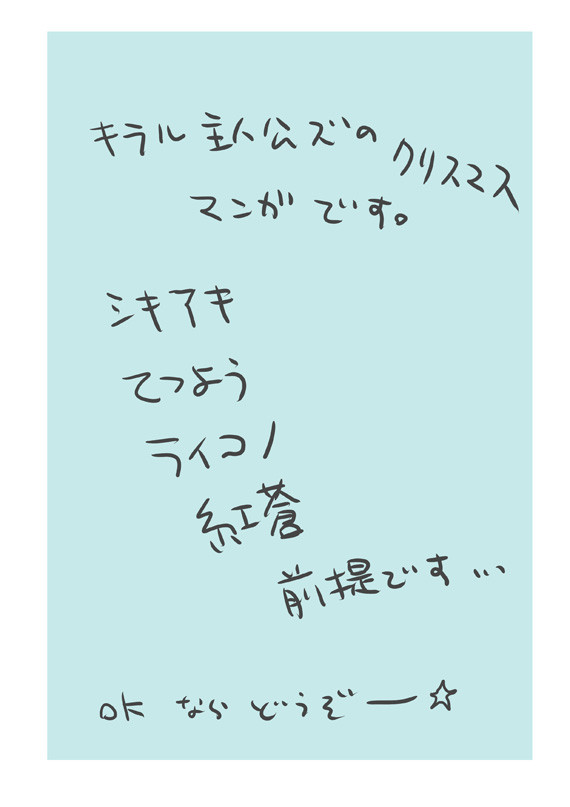 キラル主人公ズのクリスマス
マンガです。
シキアキ
てつよう
ライコノ
紅蒼
前提です…
OKならどうぞー☆